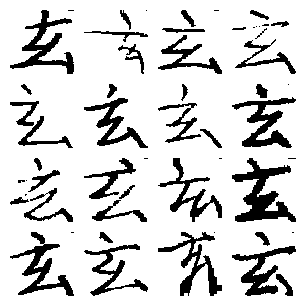 玄玄玄玄
玄玄玄玄
玄玄玄玄
玄玄玄